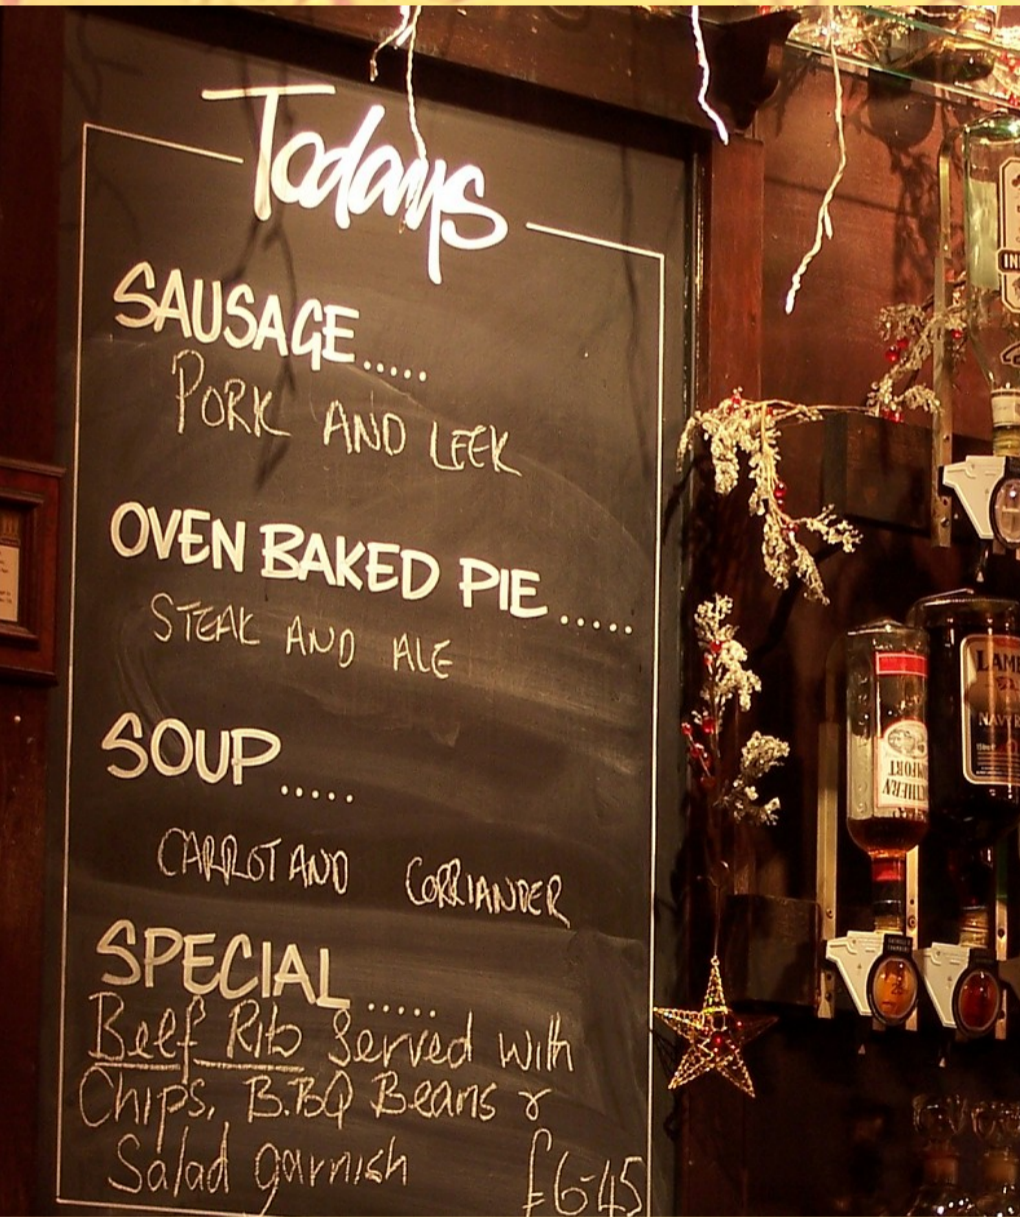 Todays
SAUSAGE.....
PORK AND LEEK
OVEN BAKED PIE.....
STEAK AND ALE
SOUP.....
CARROT AND CORRIANDER
SPECIAL.....
Beef Rib Served with
Chips, B.BQ Beans &
Salad garnish
£6-45
LAMB
NAVY R
THERN
MFORT
IN